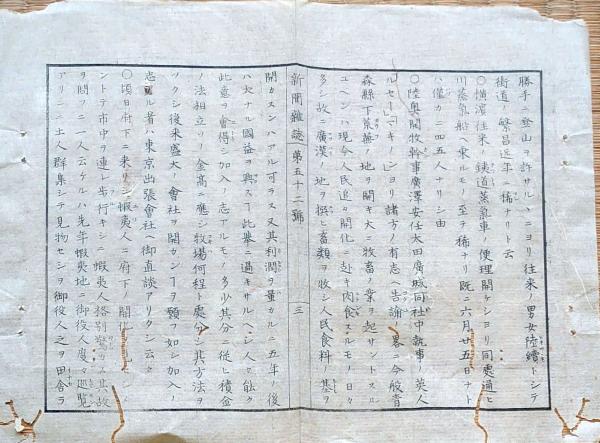 勝手ニ登山ヲ許サルヽニヨリ往来ノ男女陸續トシテ
街道ノ繁昌近年ニ稀ナリト云
〇横濱往来ノ鉄道蒸氣車ノ便理開ケシヨリ同處通ヒ
川蒸氣船ニ乗ルモノ至テ稀ナリ既ニ六月廿五日ナト
ハ僅カニ四五人ナリシ由
〇陸奥開牧幹事廣澤安任太田廣城同社中執事ノ英人
ルセーマキノシヨリ諸方ノ有志ヘ告諭ノ畧ニ今般青
森縣下荒蕪ノ地ヲ開キ大ニ牧畜ノ業ヲ起サントスル
ユヘンハ現今人民追々開化ニ赴キ肉食スルモノ日々
多シ故ニ廣漠ノ地ヲ撰ヒ畜類ヲ牧シ人民食料ノ基ヲ
新聞雜誌 第五十二號 三
開カスンハアル可ラス又其利潤ヲ量カルニ五年ノ後
ハ大ナル國益ヲ興ス丁此擧ニ過キサルヘシ人々能ク
此意ヲ會得シ加入ノ志アルモノ多少其分ニ從ヒ積金
ノ法相立リ金高ニ應シ牧場何程ト處分シ其方法ヲ
ツクシ後来盛大ノ會社ヲ開カン丁ヲ願フ如シ加入ノ
志アル者ハ東京出張會社ヘ御直談アリタシ云々
〇頃日府下ニ来リシ蝦夷人ニ府下ノ開化ヲ見セシメ
ントテ市中ヲ連レ歩行キシニ蝦夷人格別驚カス其故
ヲ問フニ一人云ケルハ先年蝦夷地ニ御役人度々巡覧
アリシニ土人群集シテ見物セシヲ御役人之ヲ田舎ラ